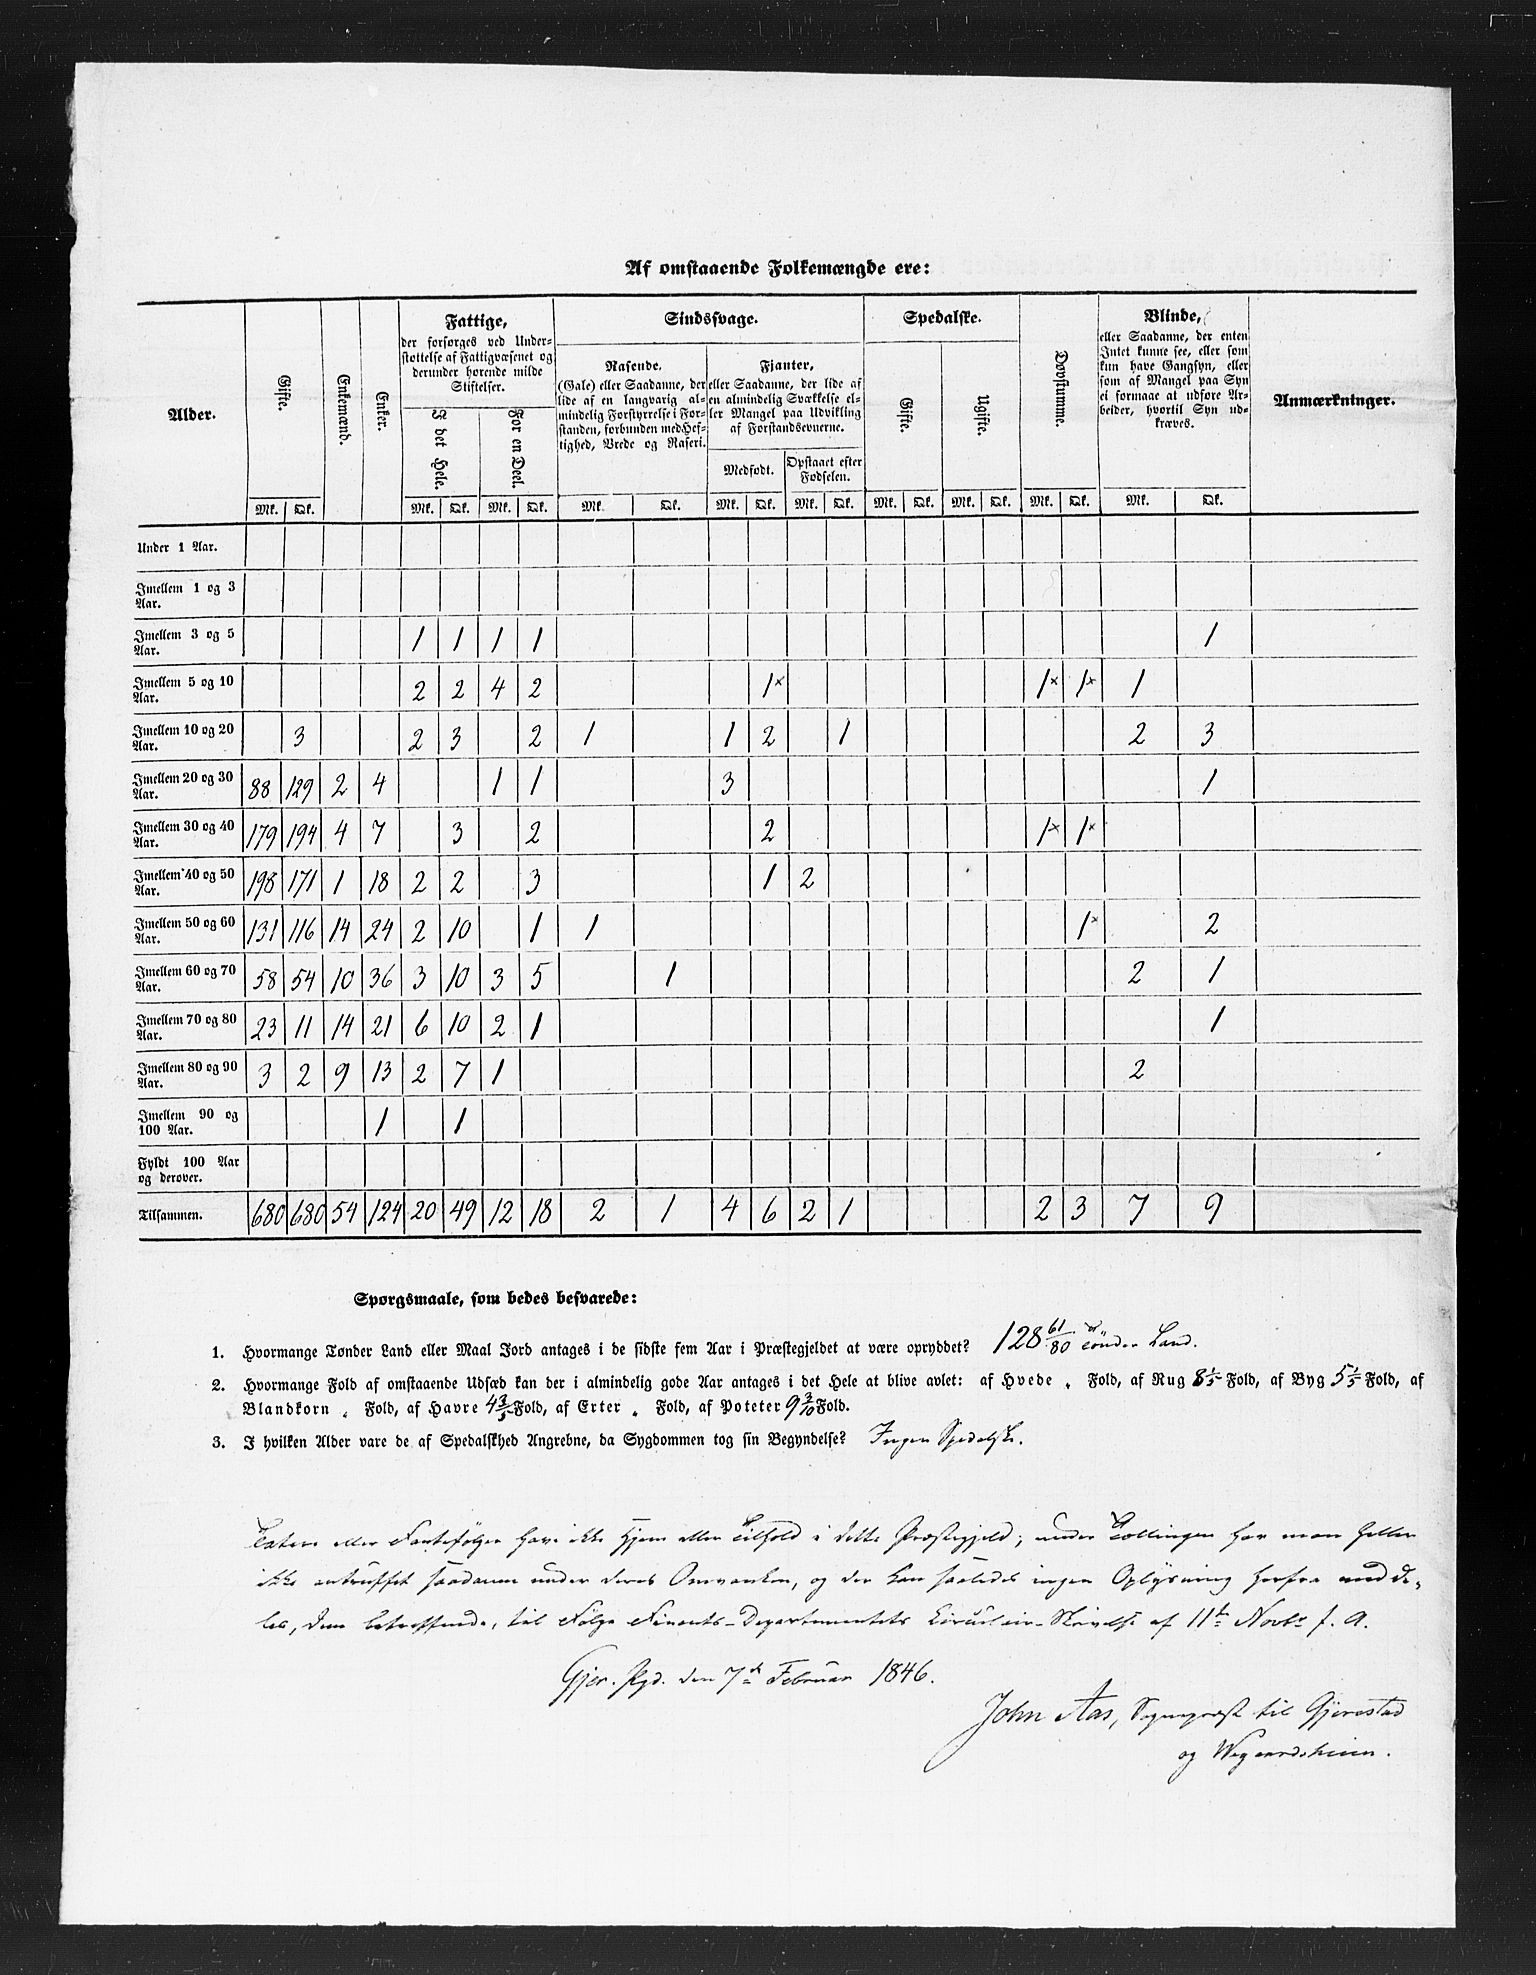 Af omstaaende Folkemængde ere:
Alder.
Gifte.
Enkemænd.
Enker.
Fattige,
der forsørges ved Under-
støttelse af Fattigvæsenet og
derunder hørende milde
Stiftelser.
I det Hele.
For en Deel.
Sindssvage.
Rasende.
(Gale) eller Saadanne, der
lide af en langvarig al-
mindelig Forstyrrelse i For-
standen, forbunden med Hef-
tighed, Vrede og Raseri.
Fjanter,
eller Saadanne, der lide af
en almindelig Svækkelse el-
ler Mangel paa Udvikling
af Forstandsevnerne.
Medfødt.
Opstaaet efter
Fødselen.
Spedalske.
Gifte.
Ugifte.
Døvstumme.
Blinde,
eller Saadanne, der enten
Intet kunne see, eller som
kun have Gangsyn, eller
som af Mangel paa Syn
ei formaae at udføre Ar-
beider, hvortil Syn ud-
kræves.
Anmærkninger.
Mk. Qk. Mk. Qk. Mk. Qk. Mk. Qk. Mk. Qk. Mk. Qk. Mk. Qk. Mk. Qk. Mk. Qk. Mk. Qk.
Under 1 Aar.
Imellem 1 og 3
Aar.
Imellem 3 og 5 1 1 1 1 1
Aar.
Imellem 5 og 10 2 2 4 2 1× 1× 1× 1
Aar.
Imellem 10 og 20 3 2 3 2 1 1 2 1 2 3
Aar.
Imellem 20 og 30 88 129 2 4 1 1 3 1
Aar.
Imellem 30 og 40 179 194 4 7 3 2 2 1× 1×
Aar.
Imellem 40 og 50 198 171 1 18 2 2 3 1 2
Aar.
Imellem 50 og 60 131 116 14 24 2 10 1 1 1× 2
Aar.
Imellem 60 og 70 58 54 10 36 3 10 3 5 1 2 1
Aar.
Imellem 70 og 80 23 11 14 21 6 10 2 1 1
Aar.
Imellem 80 og 90 3 2 9 13 2 7 1 2
Aar.
Imellem 90 og 1 1
100 Aar.
Fyldt 100 Aar
og derover.
Tilsammen. 680 680 54 124 20 49 12 18 2 1 4 6 2 1 2 3 7 9
Spørgsmaale, som bedes besvarede:
1. Hvormange Tønder Land eller Maal Jord antages i de sidste fem Aar i Præstegjeldet at være opryddet? 128 61/80 Tønder Land.
2. Hvormange Fold af omstaaende Udsæd kan der i almindelig gode Aar antages i det Hele at blive avlet: af Hvede „ Fold, af Rug 8 1/5 Fold, af Byg 5 1/5 Fold, af
Blandkorn „ Fold, af Havre 4 3/5 Fold, af Erter „ Fold, af Poteter 9 3/10 Fold.
3. I hvilken Alder vare de af Spedalskhed Angrebne, da Sygdommen tog sin Begyndelse? Ingen Spedalske.
Tatere eller Fantefølger have ikke Hjem eller Tilhold i dette Præstegjeld; under Tællingen har man heller
ikke antruffet saadanne under deres Omvanken, og der kan saaledes ingen Oplysning herfra medde-
les, dem betreffende, til Følge Finants-Departementets Circulair-Skrivelse af 11te Novbr f. A.
Gjer. Pgd. den 7de Februar 1846.
John Aas, Sognepræst til Gjerestad
og Wegaardsheien.